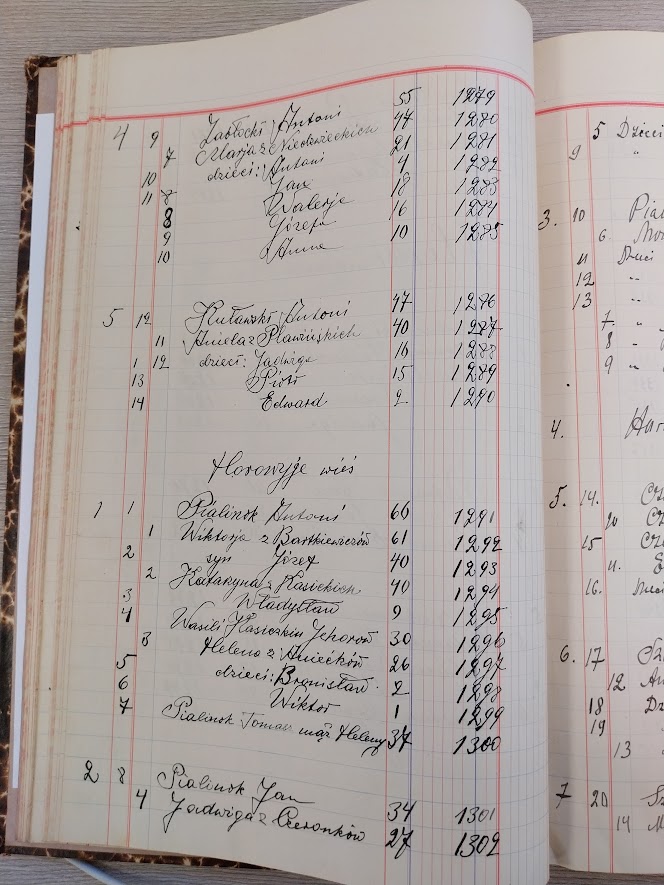 4 9 Zabłocki Antoni 55 1279
7 Marja z Niedzwieckich 47 1280
10 dzieci: Antoni 21 1281
11 Jan 4 1282
8 Walerja 18 1283
9 Józefa 16 1284
10 Anna 10 1285
5 12 Kuławski Antoni 47 1286
11 Aniela z Pławińskich 40 1287
12 dzieci: Jadwiga 16 1288
13 Piotr 15 1289
14 Edward 2 1290
Horowyje wieś
1 1 Pialinok Antoni 66 1291
1 Wiktorja z Bartkiewiczów 61 1292
2 syn Józef 40 1293
2 Katarzyna z Kasickich 40 1294
3 Władysław 9 1295
4 Wasili Kasiczkin Jehorow 30 1296
3 Helena z 26 1297
5 dzieci: Bronisław 2 1298
6 Wiktor 1 1299
7 Pialinok Tomasz mąż Heleny 37 1300
2 8 Pialinok Jan 34 1301
4 Jadwiga z 27 1302
5 Dzieci
9 "
3. 10
6
11 Dzieci
12 "
13 "
7 "
8 "
9 "
4.
5. 14.
10
15
11.
16.
6. 17
12
18
19 "
13
7 20
14